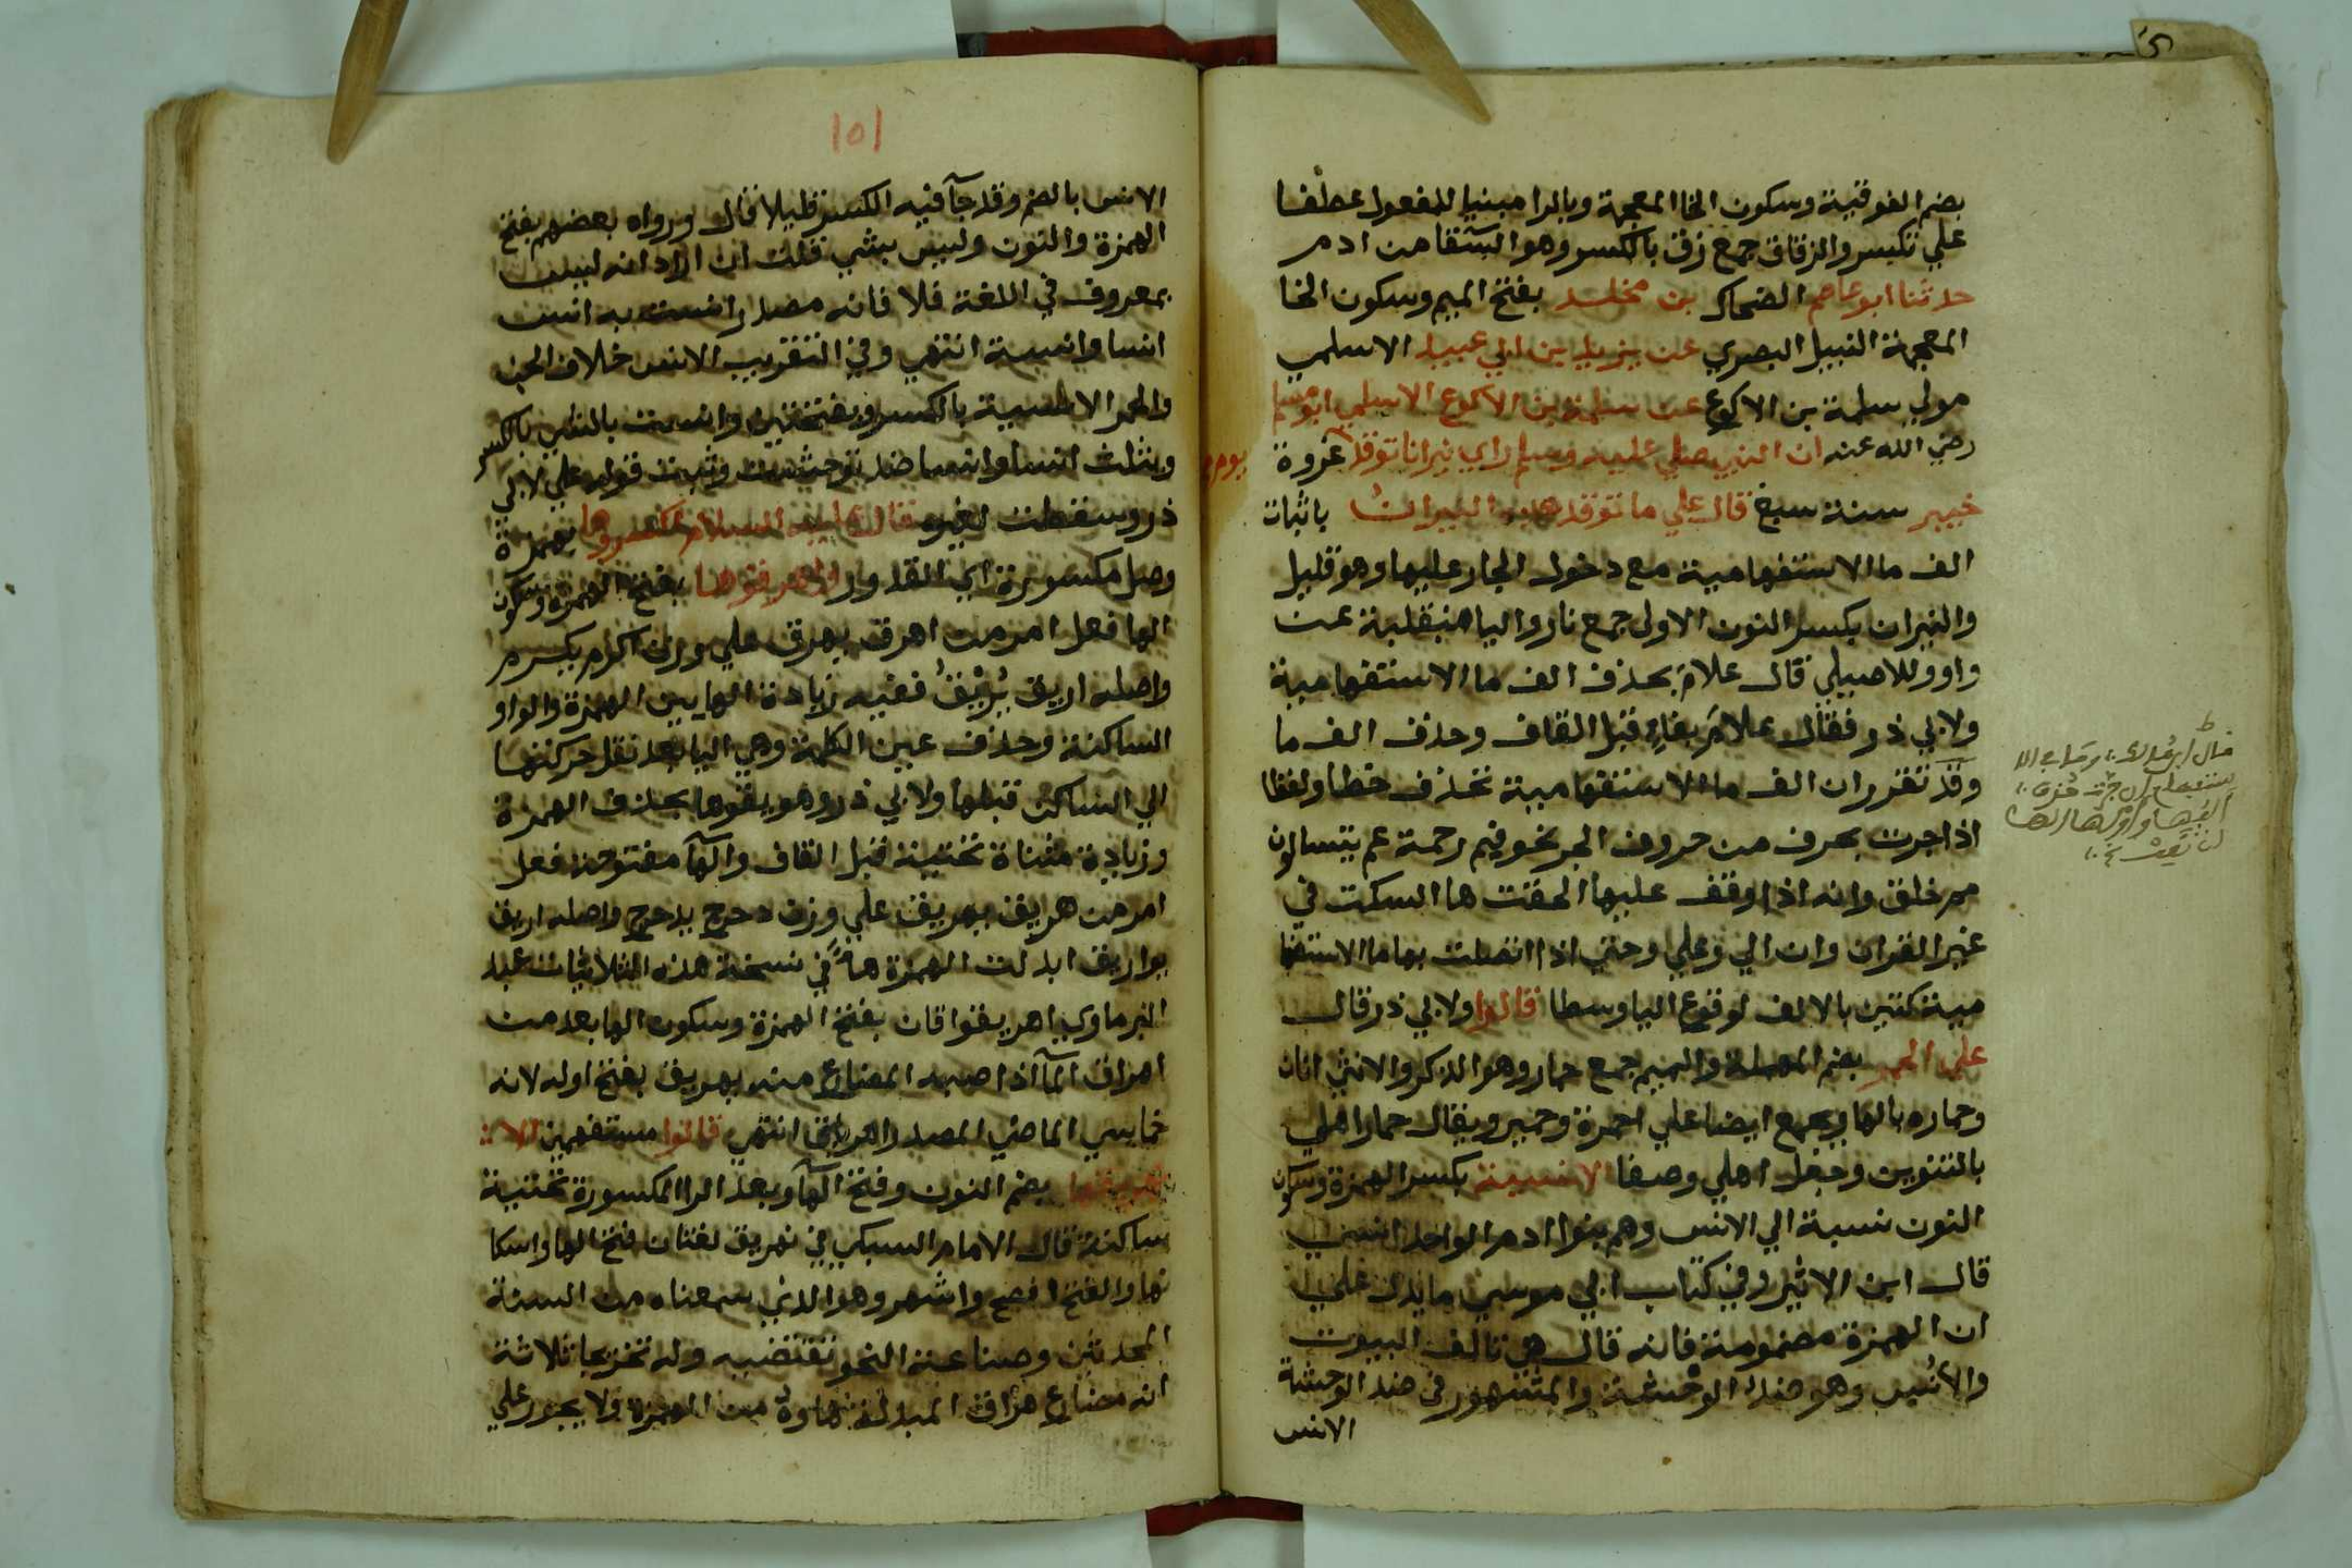 بضم الفوقية وسكون الخا المعجمة وبالرا مبنيا للمفعول عطفا
علي تكسر والزقاق جمع زق بالكسر وهو السقا من ادم
حدثنا ابو عاصم الضحاك بن مخلد بفتح الميم وسكون الخا
المعجمة النبيل البصري عن يزيد بن ابي عبيد الاسلمي
مولي سلمة بن الاكوع عن سلمة بن الاكوع الاسلمي ابو مسلم
رضي الله عنه ان النبي صلي عليه وسلم راي نيرانا توقد غزوة
يوم
خيبر سنة سبع قال علي ما توقد هذه النيران باثبات
الف ما الاستفهامية مع دخول الجار عليها وهو قليل
والنيران بكسر النون الاولي جمع نار واليا منقلبة عن
واو وللاصيلي قال علام بحذف الف ما الاستفهامية
ولابي ذر فقال علام بفاء قبل القاف وحذف الف ما
وقد تقرر ان الف ما الاستفهامية تحذف خطا ولفظا
اذا جرت بحرف من حروف الجر نحو فبم رحمة عم يتسالون
مم خلق وانه اذا وقف عليها الحقت ها السكت في
غير القران وان الي وعلي وحتي اذا اتصلت بها ما الاستفها
مية كتبن بالالف لوقوع اليا وسطا قالوا ولابي ذر قال
علي الحمر بضم المهملة والميم جمع حمار وهو الذكر والانثي اتان
وحماره بالها ويجمع ايضا علي احمرة وحمير ويقال حمار اهلي
بالتنوين وجعل اهلي وصفا الانسية بكسر الهمزة وسكون
النون نسبة الي الانس وهم بنوا ادم الواحد انسي
قال ابن الاثير وفي كتاب ابي موسي ما يدل علي
ان الهمزة مضمومة فانه قال هي تالف البيوت
والانس وهو ضد الوحشة والمشهور في ضد الوحشة
الانس
قال ابن مالك
١٥١
الانس بالضم وقد جآ فيه الكسر قليلا قال ورواه بعضهم بفتح
الهمزة والنون وليس بشي قلت ان اراد انه ليس
بمعروف في اللغة فلا فانه مصدر انست به انس
انسا وانسة انتهي وفي التقريب الانس خلاف الجن
والحمر الانسية بالكسر وبفتحتين وانست بالشي بالكسر
ويثلث انسا وانسا ضد توحشت وثبت قوله علي لابي
ذر وسقطت لغيره فقال عليه السلام اكسروها بهمزة
وصل مكسورة اي القدور واهرقوها بفتح الهمزة وسكون
الها فعل امر من اهرق يهرق علي وزن اكرم يكرم
واصله اريق يُرْيِقُ ففيه زيادة الها بين الهمزة والواو
الساكنة وحذف عين الكلمة وهي اليا بعد نقل حركتها
الي الساكن قبلها ولابي ذر وهريقوها بحذف الهمزة
وزيادة مثناة تحتية قبل القاف والهآ مفتوحة فعل
امر من هريق يهريق علي وزن دحرج يدحرج واصله اريق
يواريق ابدلت الهمزة هاً في نسخة هذه الثلاثيات عند
البرماوي اهريقوا قال بفتح الهمزة وسكون الها بعد من
اهراق المآ اذا صبه المضارع منه يهريق بفتح اوله لانه
خماسي الماضي المصدر اهراقا انتهي قالوا مستفهمين الا
نهريقها بضم النون وفتح الهآ وبعد الرا المكسورة تحتية
ساكنة قال الامام السبكي في نهريق لغتان فتح الها واسكا
نها والفتح افصح واشهر وهو الذي سمعناه من السنة
المحدثين وصناعة النحو تقتضيه وله تخريجا ثلاثة
انه مضارع هراق المبدلة هاوه من الهمزة ولا يجوز علي